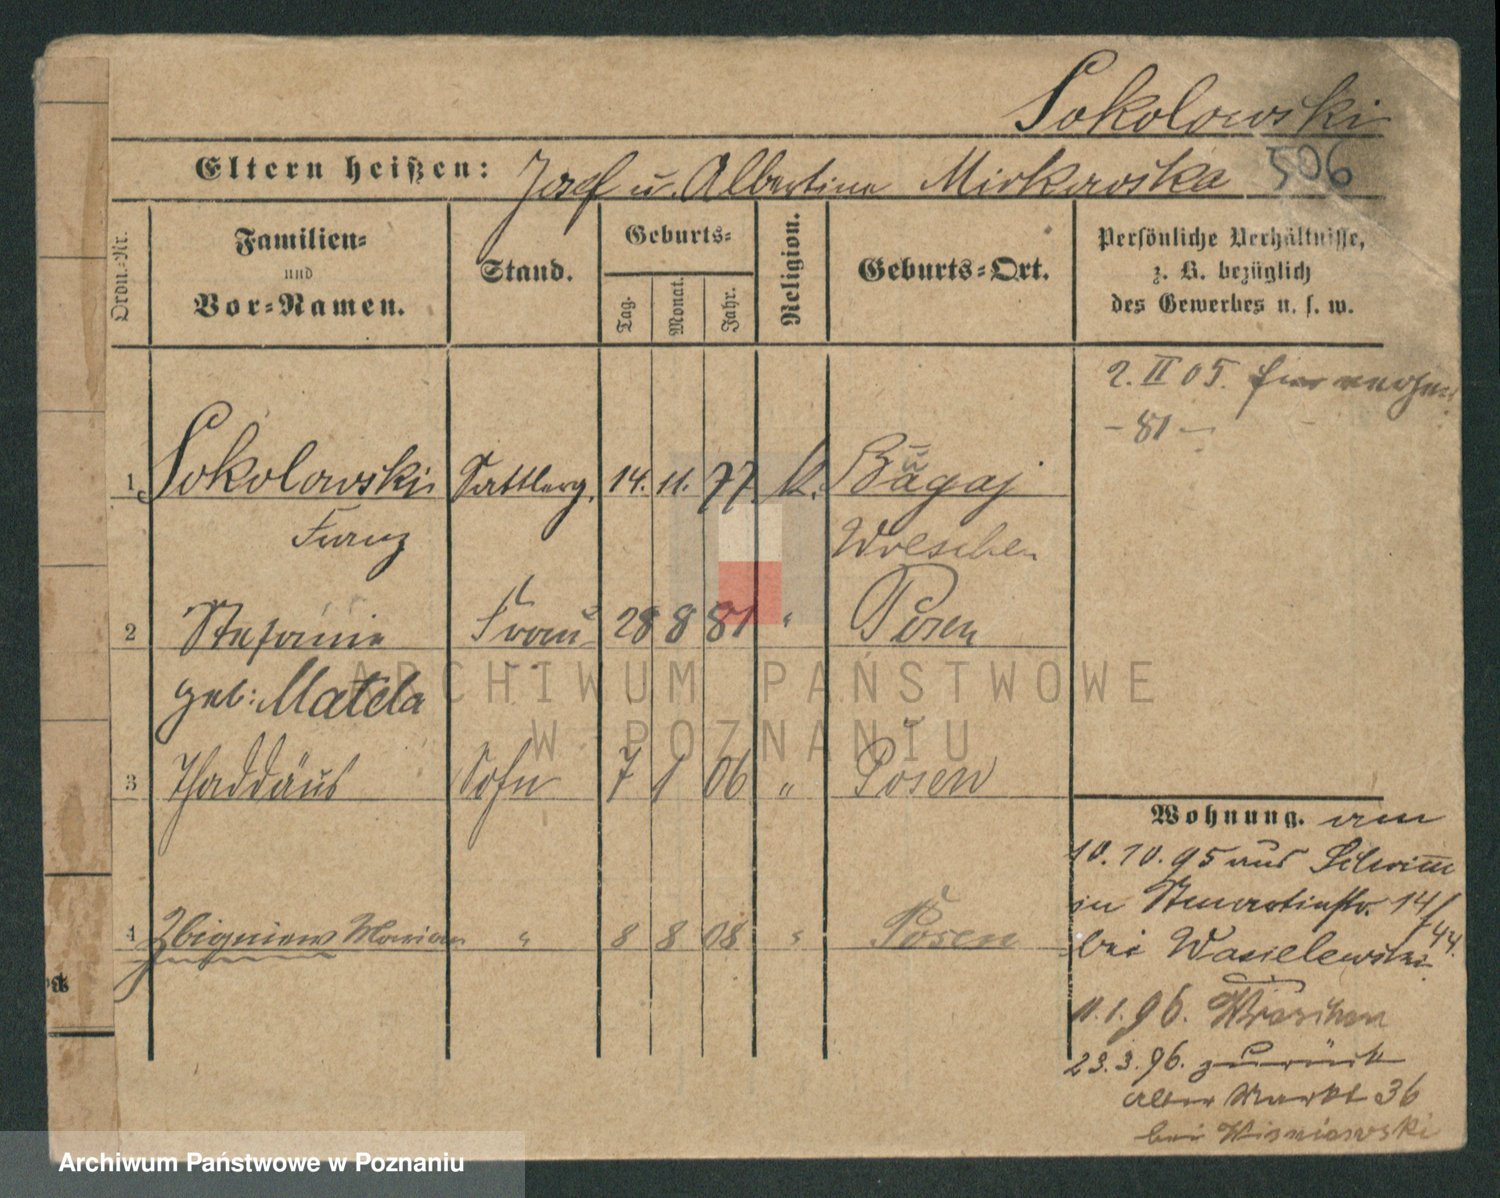 Sokolowski
506
Eltern heißen: Josef u. Albertine Mirkowska
Ordn.-Nr.
Familien-
und
Vor-Namen.
Stand.
Geburts-
Tag.
Monat.
Jahr.
Religion.
Geburts-Ort.
Persönliche Verhältnisse,
z. B. bezüglich
des Gewerbes u. s. w.
2. II 05.
- 81 -
1 Sokolowski Sattlerg. 14. 11. 77. k. Bugaj
Franz Wreschen
2 Stefanie Frau 28 8 81 " Posen
geb: Matela
3 Thaddäus Sohn 7 1 06 " Posen
4 Zbigniew Marian " 8 8 08 " Posen
Wohnung. am
10. 10. 95 aus Schrimm
in St. martinstr. 14/
44.
bei Wasielewski
11. 1. 96. Wreschen
23. 3. 96. zurück
Alter Markt 36
bei Wisniewski
ARCHIWUM PAŃSTWOWE
W POZNANIU
Archiwum Państwowe w Poznaniu